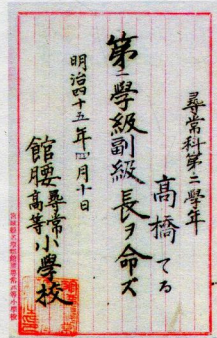 尋常科第二學年
高橋てる
第一學級副級長ヲ命ズ
明治四十五年四月十日
館腰尋常高等小學校